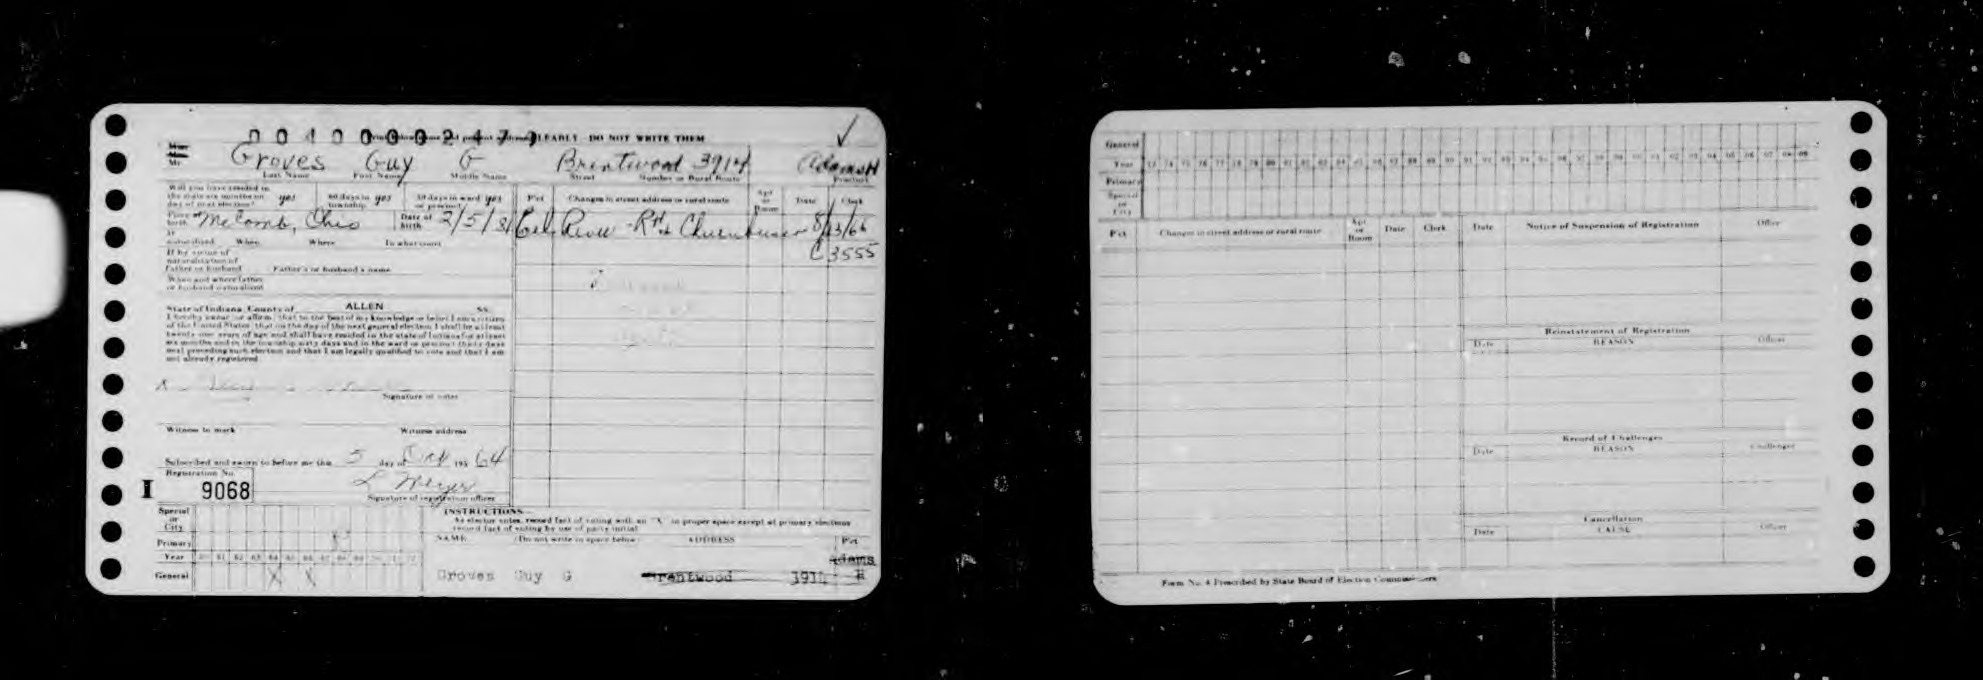 0040000247
CLEARLY - DO NOT WRITE THEM
Mr.
Groves Guy G Brentwood 3914 Adams H
Last Name First Name Middle Name Street Number or Rural Route Precinct
Will you have resided in the state six months on day of next election? yes 60 days in township yes 30 days in ward or precinct yes
Pct Changes in street address or rural route Apt or Room Date Clerk
Place of birth McComb, Ohio Date of birth 2/5/31
Cel. River - R#2 Churubusco 8/23/66
C 3555
If naturalized When Where In what court
If by virtue of naturalization of Father or husband Father's or husband's name
When and where father or husband naturalized
State of Indiana, County of ALLEN SS.
I hereby swear or affirm, that to the best of my knowledge or belief I am a citizen
of the United States, that on the day of the next general election I shall be at least
twenty-one years of age and shall have resided in the state of Indiana for at least
six months and in the township sixty days and in the ward or precinct thirty days
next preceding such election and that I am legally qualified to vote and that I am
not already registered
X
Signature of voter
Witness to mark Witness address
Subscribed and sworn to before me this 5 day of 1964
Registration No.
I 9068
L Meyer
Signature of registration officer
INSTRUCTIONS
As elector votes, record fact of voting with an "X" in proper space except at primary elections
record fact of voting by use of party initial
Special or City
Primary
Year 60 61 62 63 64 65 66 67 68 69 70 71 72
General X X
NAME (Do not write in space below) ADDRESS Pct
Groves Guy G Brentwood 3914 Adams H
General
Year 73 74 75 76 77 78 79 80 81 82 83 84 85 86 87 88 89 90 91 92 93 94 95 96 97 98 99 00 01 02 03 04 05 06 07 08 09
Primary
Special or City
Pct Changes in street address or rural route Apt or Room Date Clerk
Date Notice of Suspension of Registration Officer
Reinstatement of Registration
Date REASON Officer
Record of Challenges
Date REASON Challenger
Cancellation
Date CAUSE Officer
Form No. 4 Prescribed by State Board of Election Commissioners